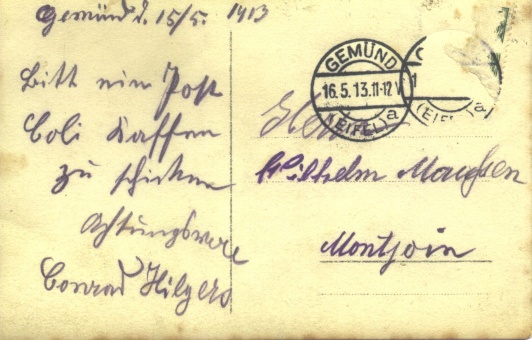 Gemünd d. 15/5. 1913
Bitt ein Post
Coli Kaffen
zu schicken
Achtungsvoll
Conrad Hilgers
GEMÜND
16.5.13.11-12 V
(EIFEL) a
(EIFEL) a
Herrn
Wilhelm
Montjoie